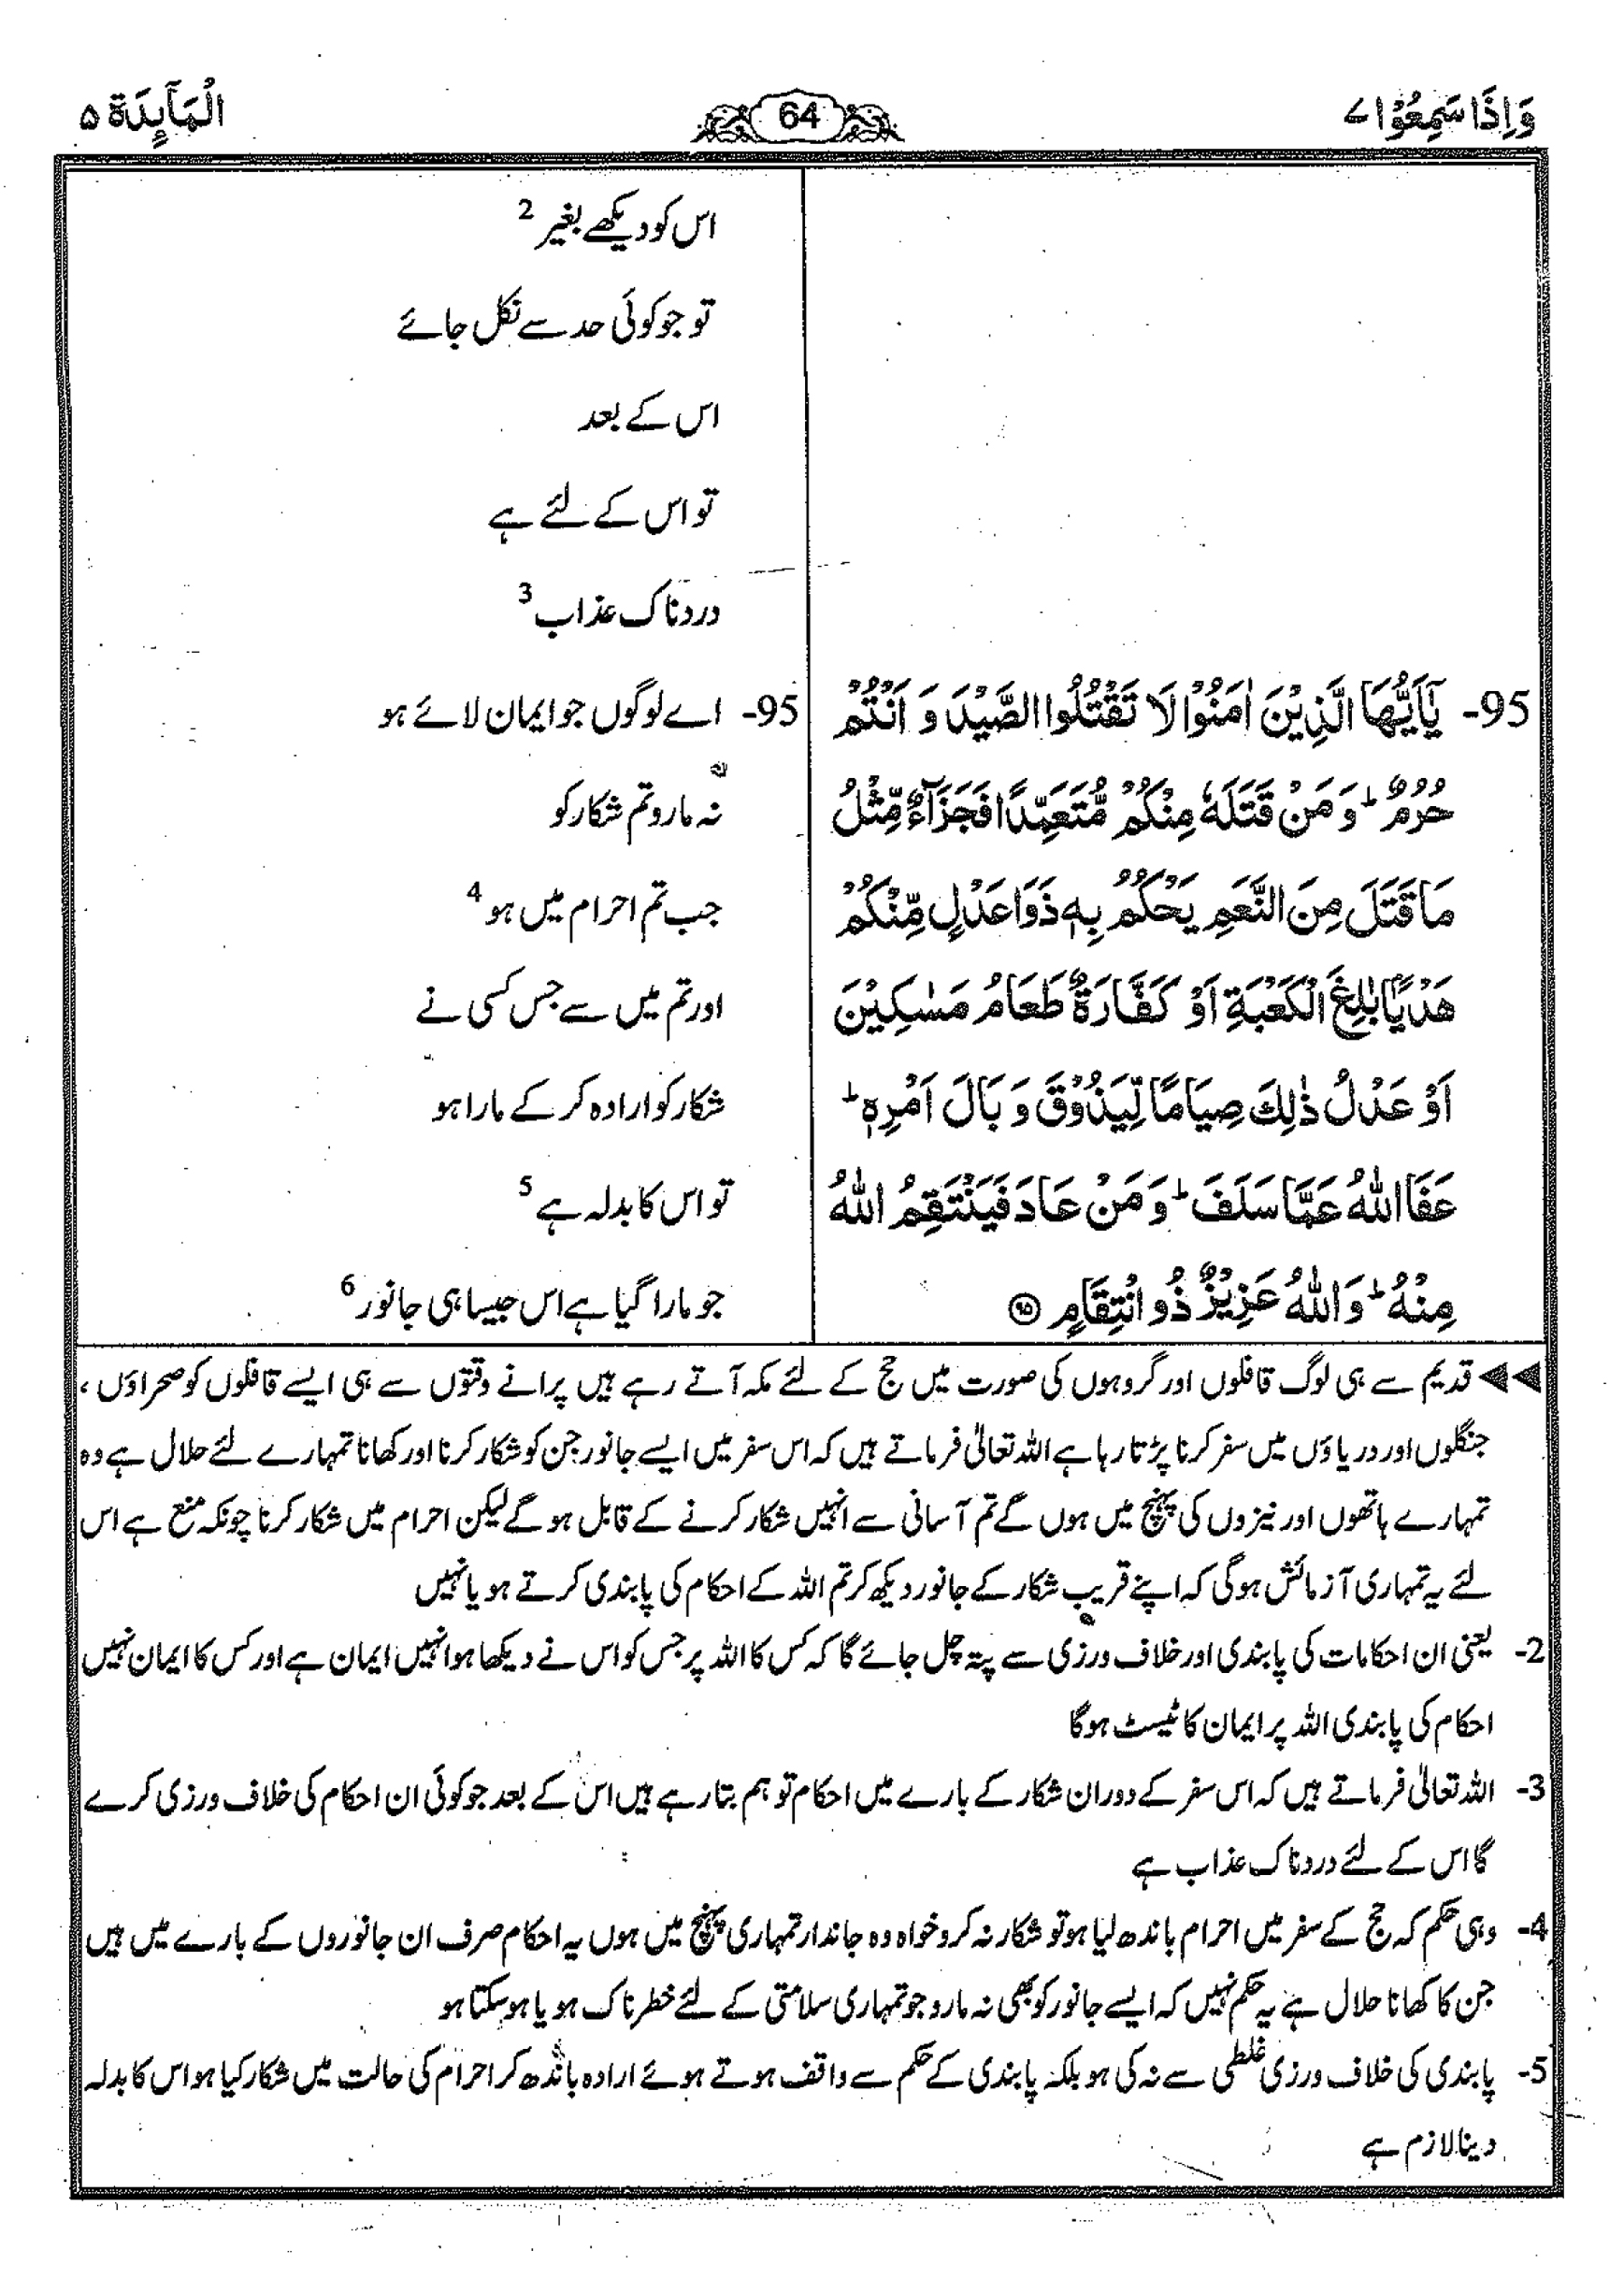 وَاِذَا سَمِعُوْا ۷
64
الْمَآئِدَة ۵
اس کو دیکھے بغیر 2
تو جو کوئی حد سے نکل جائے
اس کے بعد
تو اس کے لئے ہے
دردناک عذاب 3
95- يٰٓاَيُّهَا الَّذِيْنَ اٰمَنُوْا لَا تَقْتُلُوا الصَّيْدَ وَ اَنْتُمْ
حُرُمٌ ؕ وَ مَنْ قَتَلَهٗ مِنْكُمْ مُّتَعَمِّدًا فَجَزَآءٌ مِّثْلُ
مَا قَتَلَ مِنَ النَّعَمِ يَحْكُمُ بِهٖ ذَوَا عَدْلٍ مِّنْكُمْ
هَدْيًۢا بٰلِغَ الْكَعْبَةِ اَوْ كَفَّارَةٌ طَعَامُ مَسٰكِيْنَ
اَوْ عَدْلُ ذٰلِكَ صِيَامًا لِّيَذُوْقَ وَ بَالَ اَمْرِهٖ ؕ
عَفَا اللّٰهُ عَمَّا سَلَفَ ؕ وَ مَنْ عَادَ فَيَنْتَقِمُ اللّٰهُ
مِنْهُ ؕ وَ اللّٰهُ عَزِيْزٌ ذُو انْتِقَامٍ ۹۵
95- اے لوگوں جو ایمان لائے ہو
نہ مارو تم شکار کو
جب تم احرام میں ہو 4
اور تم میں سے جس کسی نے
شکار کو ارادہ کر کے مارا ہو
تو اس کا بدلہ ہے 5
جو مارا گیا ہے اس جیسا ہی جانور 6
قدیم سے ہی لوگ قافلوں اور گروہوں کی صورت میں حج کے لئے مکہ آتے رہے ہیں پرانے وقتوں سے ہی ایسے قافلوں کو صحراؤں ،
جنگلوں اور دریاؤں میں سفر کرنا پڑتا رہا ہے اللہ تعالیٰ فرماتے ہیں کہ اس سفر میں ایسے جانور جن کو شکار کرنا اور کھانا تمہارے لئے حلال ہے وہ
تمہارے ہاتھوں اور نیزوں کی پہنچ میں ہوں گے تم آسانی سے انہیں شکار کرنے کے قابل ہو گے لیکن احرام میں شکار کرنا چونکہ منع ہے اس
لئے یہ تمہاری آزمائش ہو گی کہ اپنے قریب شکار کے جانور دیکھ کر تم اللہ کے احکام کی پابندی کرتے ہو یا نہیں
2- یعنی ان احکامات کی پابندی اور خلاف ورزی سے پتہ چل جائے گا کہ کس کا اللہ پر جس کو اس نے دیکھا ہوا نہیں ایمان ہے اور کس کا ایمان نہیں
احکام کی پابندی اللہ پر ایمان کا ٹیسٹ ہو گا
3- اللہ تعالیٰ فرماتے ہیں کہ اس سفر کے دوران شکار کے بارے میں احکام تو ہم بتا رہے ہیں اس کے بعد جو کوئی ان احکام کی خلاف ورزی کرے
گا اس کے لئے دردناک عذاب ہے
4- وہی حکم کہ حج کے سفر میں احرام باندھ لیا ہو تو شکار نہ کرو خواہ وہ جاندار تمہاری پہنچ میں ہوں یہ احکام صرف ان جانوروں کے بارے میں ہیں
جن کا کھانا حلال ہے یہ حکم نہیں کہ ایسے جانور کو بھی نہ مارو جو تمہاری سلامتی کے لئے خطرناک ہو یا ہو سکتا ہو
5- پابندی کی خلاف ورزی غلطی سے نہ کی ہو بلکہ پابندی کے حکم سے واقف ہوتے ہوئے ارادہ باندھ کر احرام کی حالت میں شکار کیا ہو اس کا بدلہ
دینا لازم ہے